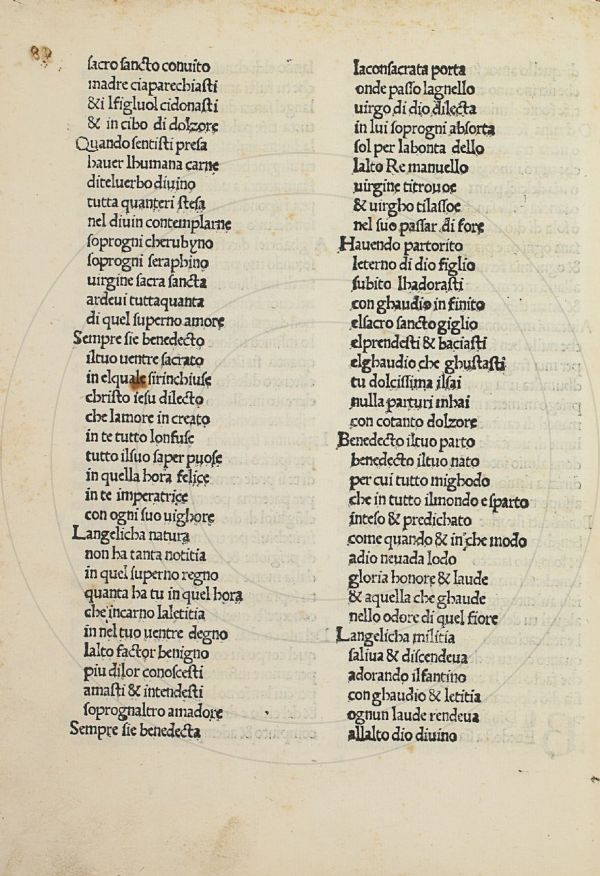 89
sacro sancto conuito
madre ciaparechiasti
&i lfigluol cidonasti
& in cibo di dolzore
Quando sentisti presa
hauer lhumana carne
diteluerbo diuino
tutta quanteri stesa
nel diuin contemplarne
soprogni cherubyno
soprogni seraphino
uirgine sacra sancta
ardeui tuttaquanta
di quel superno amore
Sempre sie benedecto
iltuo uentre sacrato
in elquale sirinchiuse
christo iesu dilecto
che lamore in creato
in te tutto lonfuse
tutto ilsuo saper puose
in quella hora felice
in te imperatrice
con ogni suo uighore
Langelicha natura
non ha tanta notitia
in quel superno regno
quanta ha tu in quel hora
che incarno laletitia
in nel tuo uentre degno
lalto factor benigno
piu dilor conoscesti
amasti & intendesti
soprognaltro amadore
Sempre sie benedecta
laconsacrata porta
onde passo lagnello
uirgo di dio dilecta
in lui soprogni absorta
sol per labonta dello
lalto Re manuello
uirgine titrouoe
& uirgho tilassoe
nel suo passar di fore
Hauendo partorito
leterno di dio figlio
subito lhadorasti
con ghaudio in finito
elsacro sancto giglio
elprendesti & baciasti
elghaudio che ghustasti
tu dolcissima ilsai
nulla parturi mhai
con cotanto dolzore
Benedecto iltuo parto
benedecto iltuo nato
per cui tutto mighodo
che in tutto ilmondo e sparto
inteso & predichato
come quando & in che modo
adio neuada lodo
gloria honore & laude
& aquella che ghaude
nello odore di quel fiore
Langelicha militia
saliua & discendeua
adorando ilfantino
con ghaudio & letitia
ognun laude rendeua
allalto dio diuino